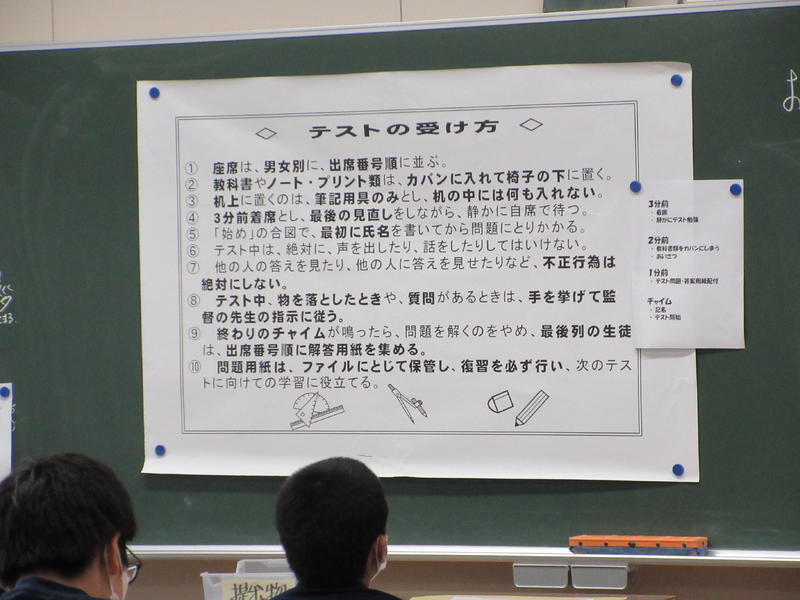 テストの受け方
① 座席は、男女別に、出席番号順に並ぶ。
② 教科書やノート・プリント類は、カバンに入れて椅子の下に置く。
③ 机上に置くのは、筆記用具のみとし、机の中には何も入れない。
④ 3分前着席とし、最後の見直しをしながら、静かに自席で待つ。
⑤ 「始め」の合図で、最初に氏名を書いてから問題にとりかかる。
⑥ テスト中は、絶対に、声を出したり、話をしたりしてはいけない。
⑦ 他の人の答えを見たり、他の人に答えを見せたりなど、不正行為は
絶対にしない。
⑧ テスト中、物を落としたときや、質問があるときは、手を挙げて監
督の先生の指示に従う。
⑨ 終わりのチャイムが鳴ったら、問題を解くのをやめ、最後列の生徒
は、出席番号順に解答用紙を集める。
⑩ 問題用紙は、ファイルにとじて保管し、復習を必ず行い、次のテス
トに向けての学習に役立てる。
3分前
・着席
・静かにテスト勉強
2分前
・教科書類をカバンにしまう
・あいさつ
1分前
・テスト問題・答案用紙配付
チャイム
・記名
・テスト開始
お
提出物